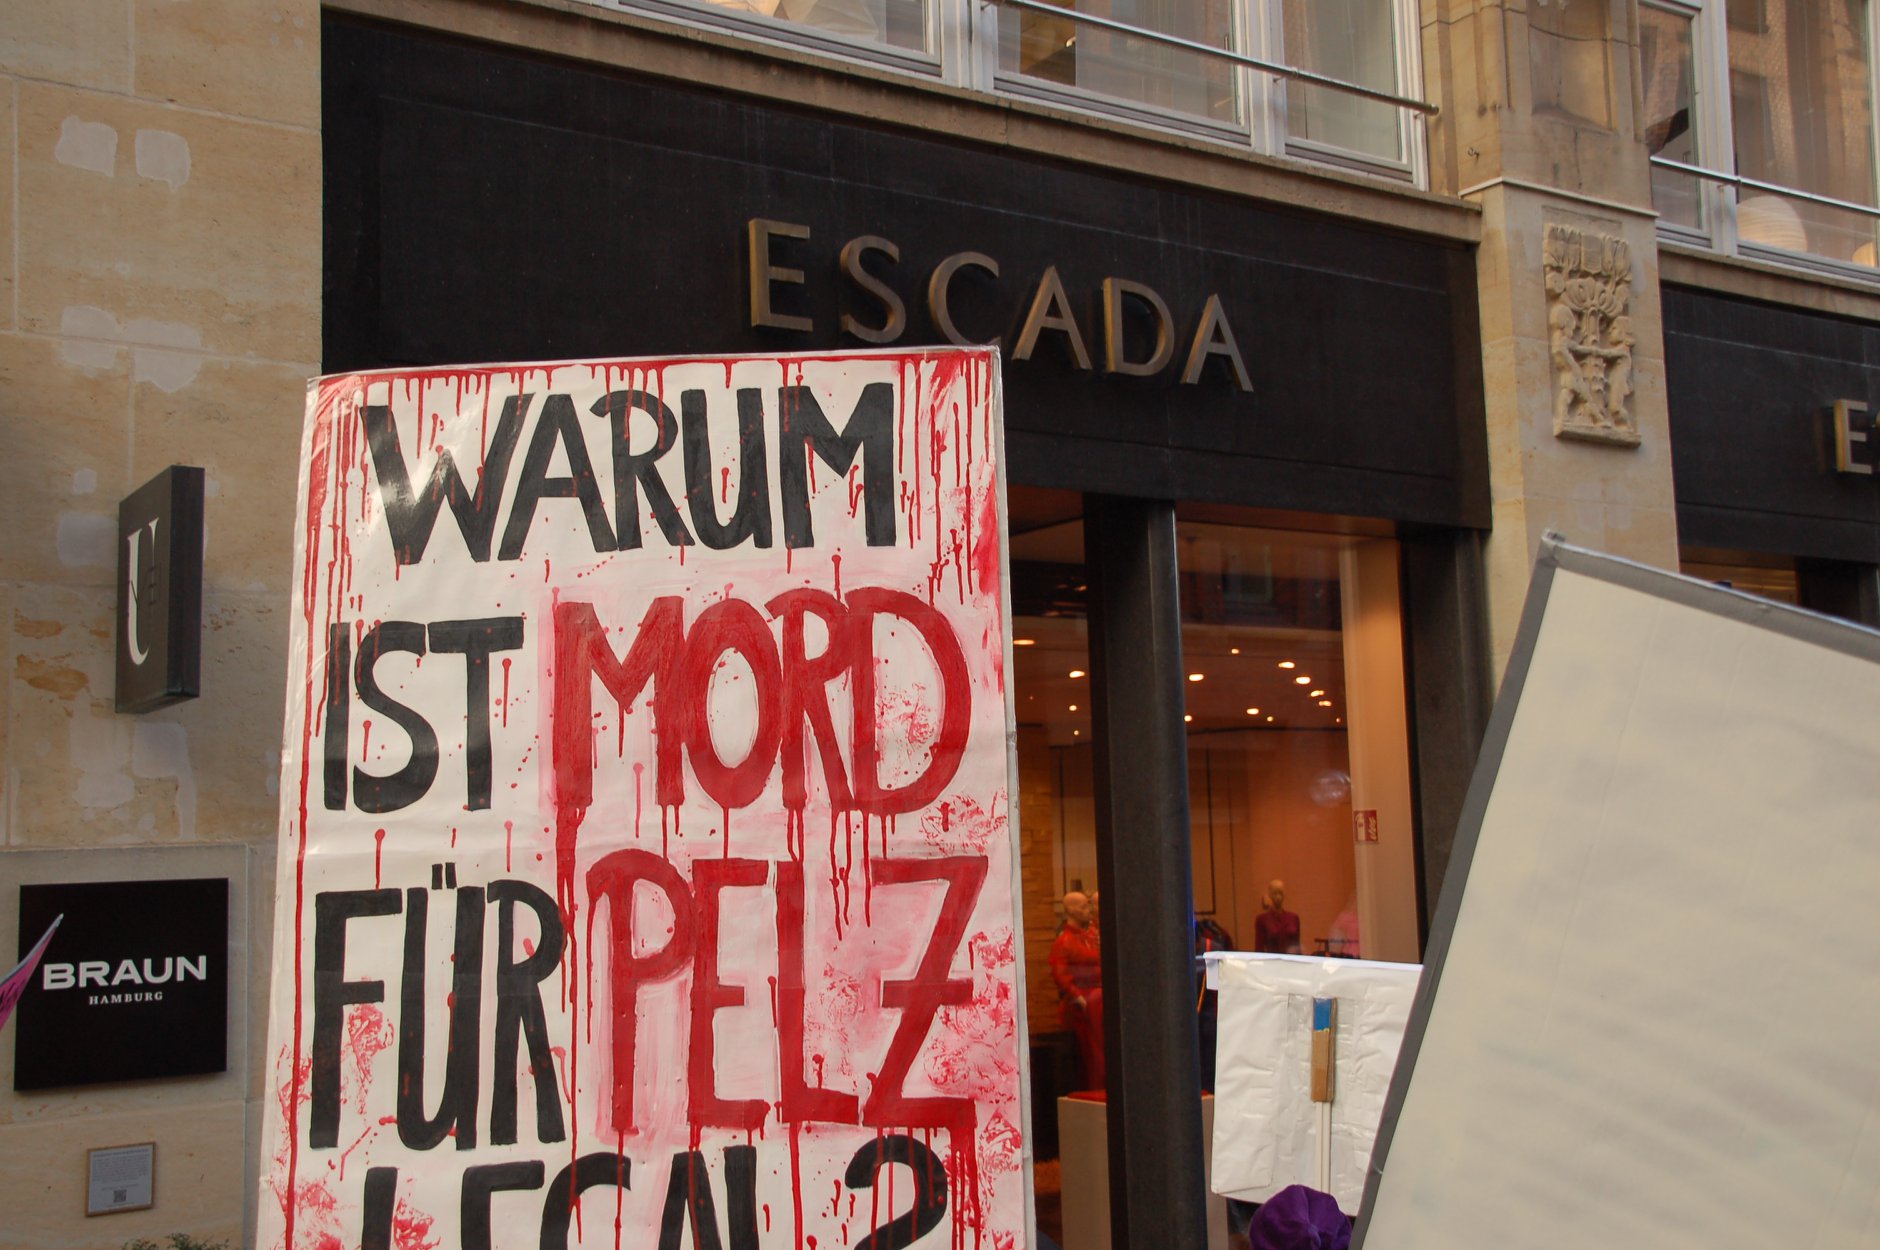 ESCADA
WARUM
IST MORD
FÜR PELZ
LEGAL?
BRAUN
HAMBURG